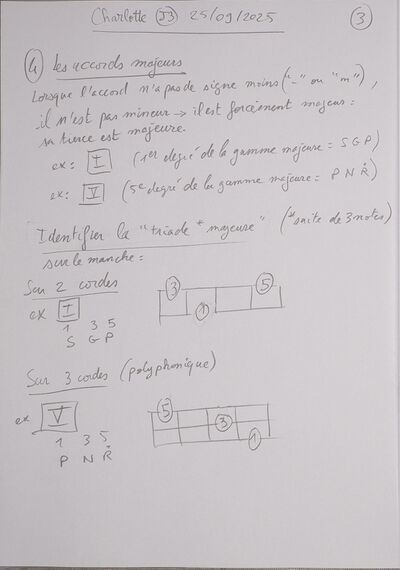 Charlotte (J3) 25/09/2025 (3)
(4) Les accords majeurs
Lorsque l'accord n'a pas de signe moins ("-" ou "m"),
il n'est pas mineur → il est forcément majeur :
sa tierce est majeure.
ex : I (1er degré de la gamme majeure = S G P)
ex : V (5e degré de la gamme majeure = P N Ṙ)
Identifier la "triade* majeure" (*suite de 3 notes)
sur le manche :
Sur 2 cordes
ex I
1 3 5
S G P
3 5
1
Sur 3 cordes (polyphonique)
ex V
1 3 5
P N Ṙ
5
3
1